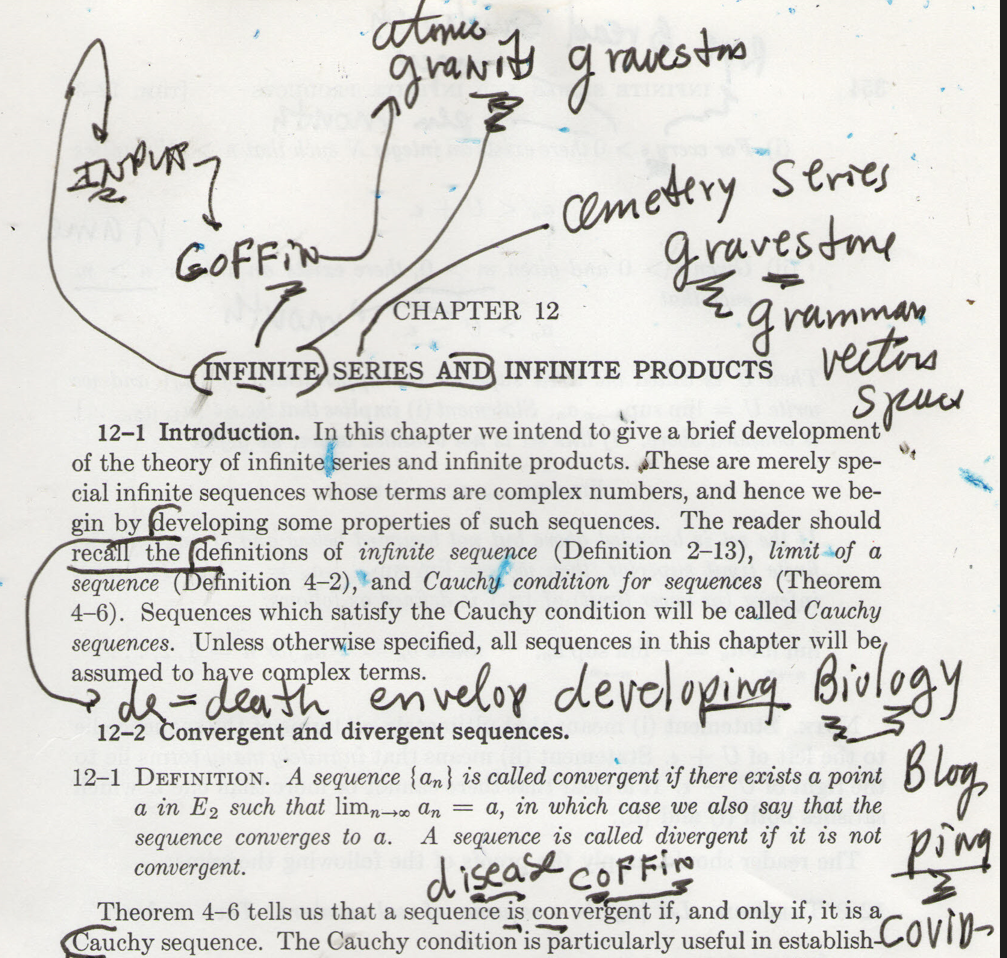 atomic
granity gravestone
INPUT
Cemetery Series
COFFIN
gravestone
CHAPTER 12
grammar
vectors
space
INFINITE SERIES AND INFINITE PRODUCTS
12–1 Introduction. In this chapter we intend to give a brief development
of the theory of infinite series and infinite products. These are merely spe-
cial infinite sequences whose terms are complex numbers, and hence we be-
gin by developing some properties of such sequences. The reader should
recall the definitions of infinite sequence (Definition 2–13), limit of a
sequence (Definition 4–2), and Cauchy condition for sequences (Theorem
4–6). Sequences which satisfy the Cauchy condition will be called Cauchy
sequences. Unless otherwise specified, all sequences in this chapter will be
assumed to have complex terms.
de = death envelop developing Biology
12–2 Convergent and divergent sequences.
Blog
12–1 DEFINITION. A sequence {aₙ} is called convergent if there exists a point
a in E₂ such that limₙ→∞ aₙ = a, in which case we also say that the
sequence converges to a. A sequence is called divergent if it is not
convergent.
ping
disease coffin
Theorem 4–6 tells us that a sequence is convergent if, and only if, it is a
Cauchy sequence. The Cauchy condition is particularly useful in establish-
COVID-